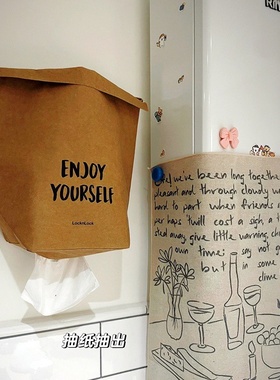 ENJOY
YOURSELF
LocknLock
抽纸抽出
RIN
Life! we've been long together
pleasant and through cloudy we
hard to part when friends a
per haps 'twill cost a sigh, a t
steal away, give little warning, cho
own time; say not go
but in some
clime